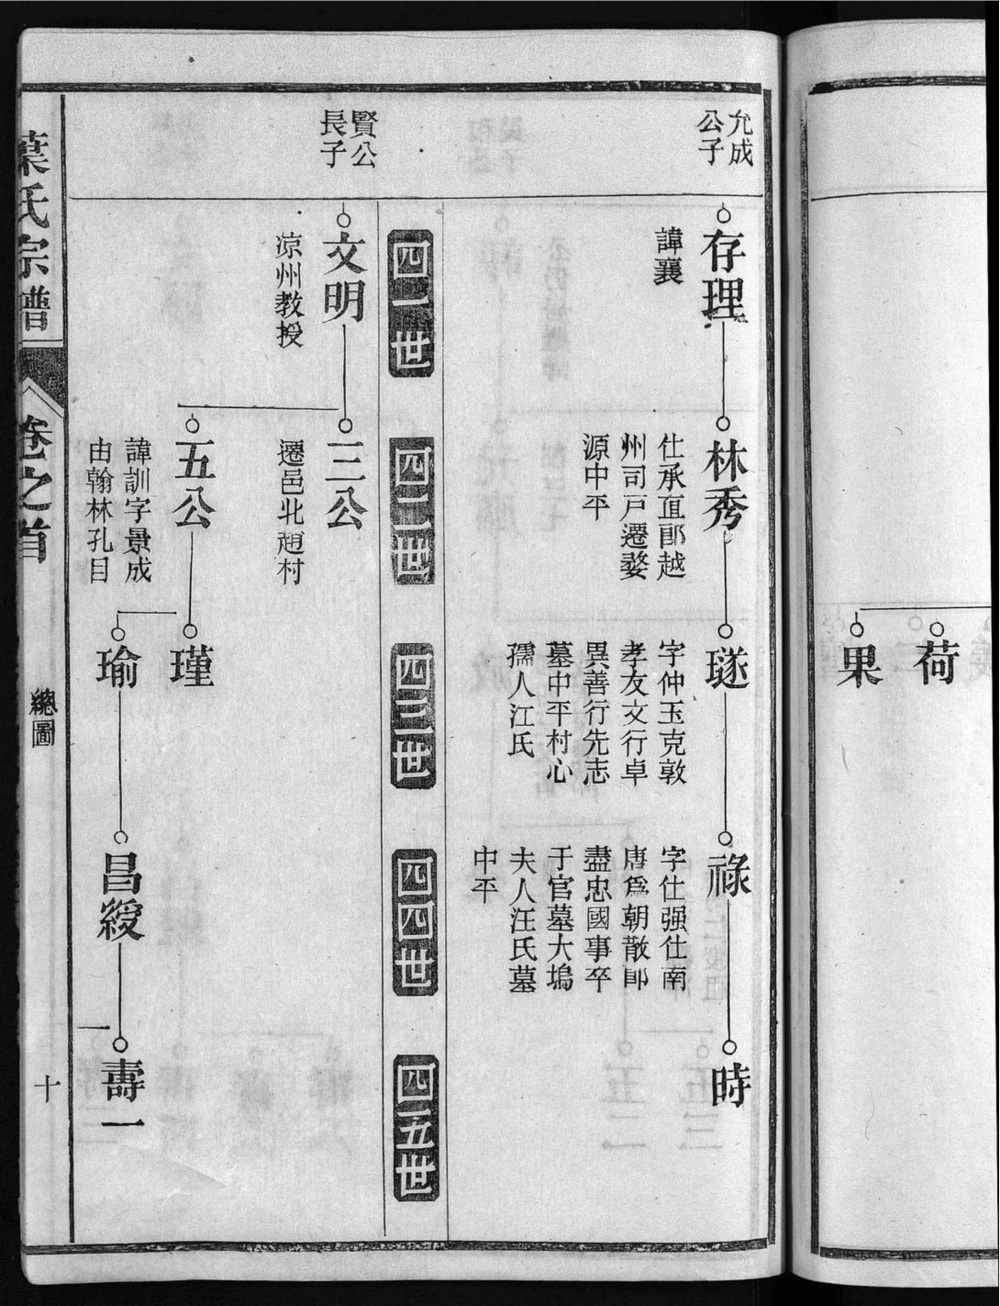 荷
果
允成
公子
存理
諱襄
林秀
仕承直郎越
州司戸遷婺
源中平
璲
字仲玉克敦
孝友文行卓
異善行先志
墓中平村心
孺人江氏
祿
字仕强仕南
唐爲朝散郎
盡忠國事卒
于官墓大塢
夫人汪氏墓
中平
時
四一世
四二世
四三世
四四世
四五世
賢公
長子
文明
凉州教授
三公
遷邑北趙村
五公
諱訓字景成
由翰林孔目
瑾
瑜
昌綬
壽一
葉氏宗譜
卷之首
總圖
十